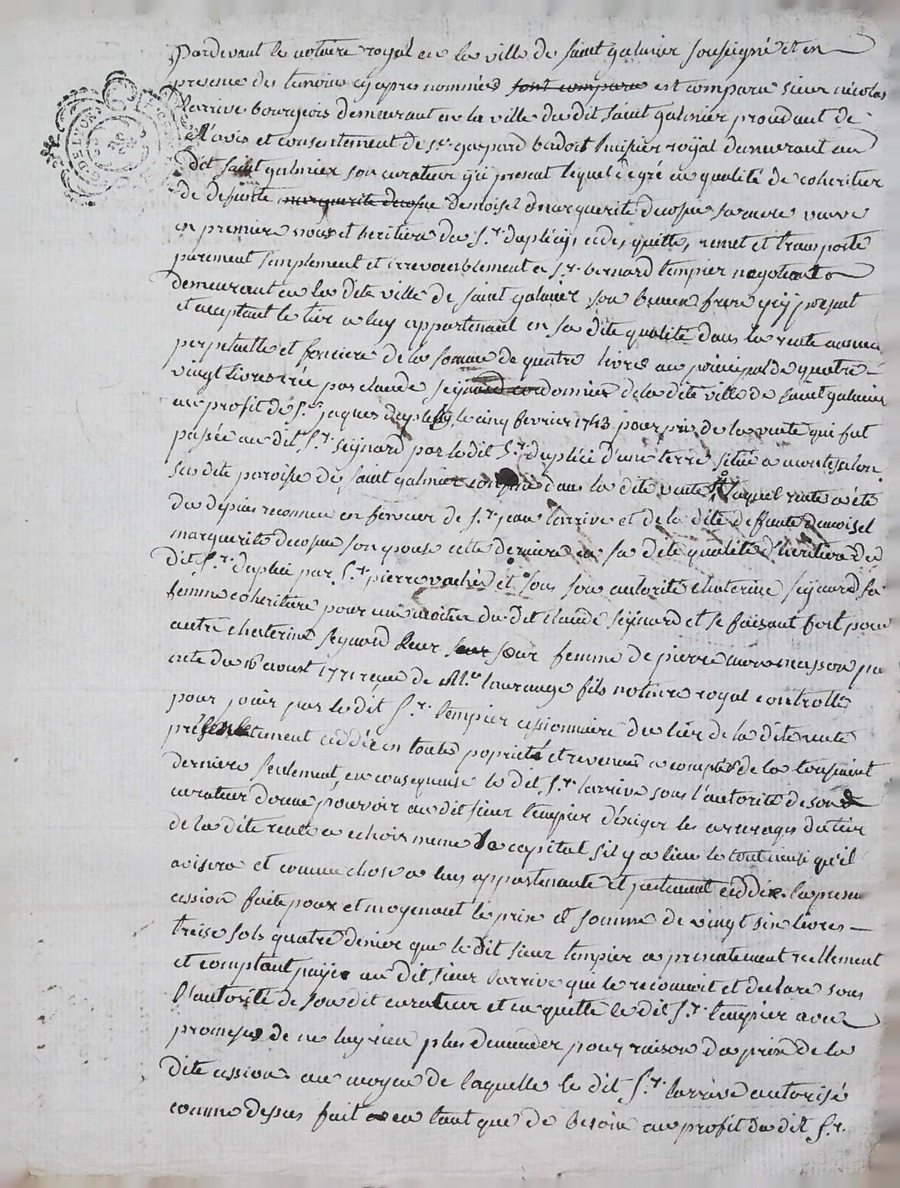 Pardevant le notaire royal en la ville de saint galmier soussigné et en
presence des temoins cy apres nommés sont comparu est comparu sieur nicolas
larrive bourgeois demeurant en la ville du dit saint galmier procedant de
l'avis et consentement de sr. gaspard benoit huissier royal demeurant au
dit saint galmier son curateur icy present lequel de gré en qualité de coheritier
de defunte marguerite decope demoisel marguerite decope sa mere vuve
en premiere nous et heritiere du sr. duplécy cede, quitte, remet et transporte
purement simplement et irrevocablement a sr. bernard tempier negotiant
demeurant en la dite ville de saint galmier son beau frere icy present
et acceptant le tier a luy appartenant en sa dite qualité dans la rente annuel
perpetuelle et fonciere de la somme de quatre livres au principal de quatre
vingt livres créé par claude seignard cordonnier de la dite ville de saint galmier
au profit de sr. jaques duplessy le cinq fevrier 1743 pour prix de la vente qui fut
passée au dit sr. seignard par le dit sr. duplécé d'une terre située a montesalon
sus dite paroisse de saint galmier confiné dans la dite vente laquel rente a été
du depuis reconnue en ferveur de sr. jean larrive et de la dite defunte demoisel
marguerite decope son epouse cette derniere en sa dite qualité d'heritiere du
dit sr. duplecé par sr. pierre vachés et sous son autorité chaterine seignard sa
femme coheritiere pour une moitié du dit claude seignard et se faisant fort pour
autre chaterine seignard leur soeur femme de pierre masson par
acte du 16 aoust 1771 reçue de Me. laurange fils notaire royal controllé
pour jouir par le dit sr. tempier cessionnaire du tier de la dite rente
présentement cèddée en toutes proprieté et revenus a compter de la toussaint
derniere seulement, en consequence le dit sr. larrive sous l'autorité de son
curateur donne pouvoir au dit sieur tempier d'exiger les arrerages du tier
de la dite rente a echoir meme le capital s'il y a lieu le tout ainsi qu'il
avisera et comme chose a luy appartenante et justement cèddée la presen
cession faite pour et moyenant le prix et somme de vingt six livres
treise sols quatre denier que le dit sieur tempier a presentement reellement
et comptant payée au dit sieur larrive que le reconnoit et declare sous
l'autorité de son dit curateur et en quitte le dit sr. tempier avec
promesse de ne luy rien plus demander pour raison du prix de la
dite cession au moyen de laquelle le dit sr. larrive autorisé
comme dessus fait en tant que de besoin au profit du dit sr.